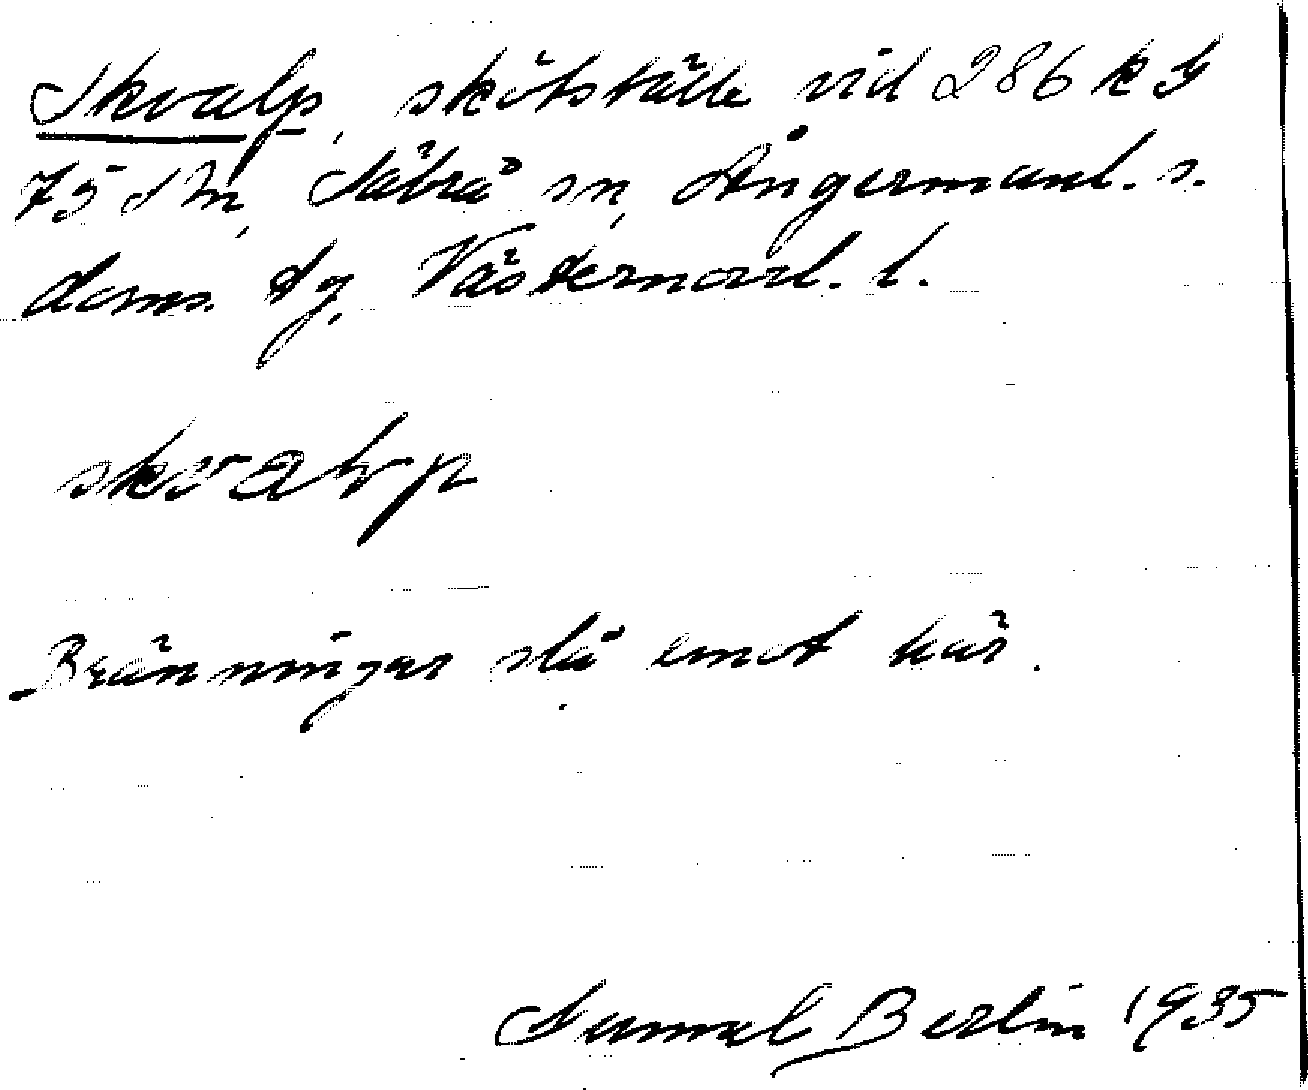 Skvalp, skötställe vid 286 k G
75 Sm, Säbrå sn, Ångermanl. s.
doms. tg, Västernorrl. l.
skvalp
Bränningar slå emot här.
Berlin 1935